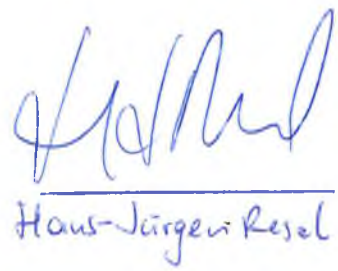 Hans-Jürgen Resel